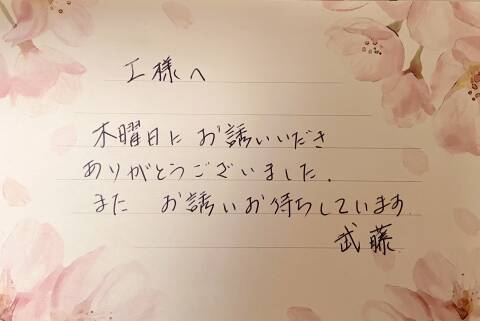 工様へ
木曜日に お誘いいださ
ありがとうございました.
また お誘いお待ちしています
武藤